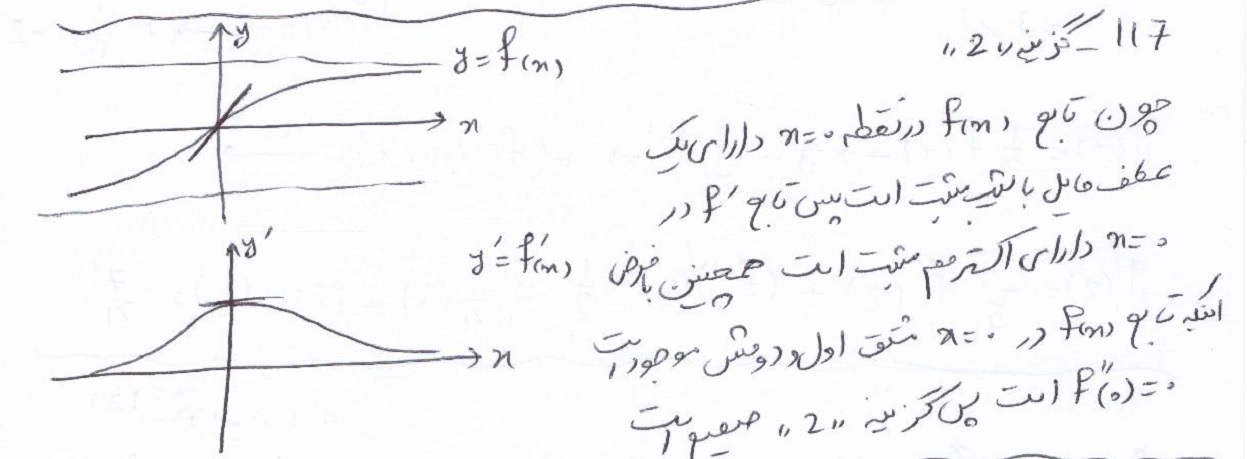 117 - گزینه "2"
چون تابع f(x) در نقطه x=0 دارای یک
عطف مایل با شیب مثبت است پس تابع f' در
x=0 دارای اکسترمم مثبت است همچنین با فرض
اینکه تابع f(x) در x=0 مشتق اول و دومش موجود است
f''(0)=0 است پس گزینه "2" صحیح است
y
y=f(x)
x
y'
y'=f'(x)
x